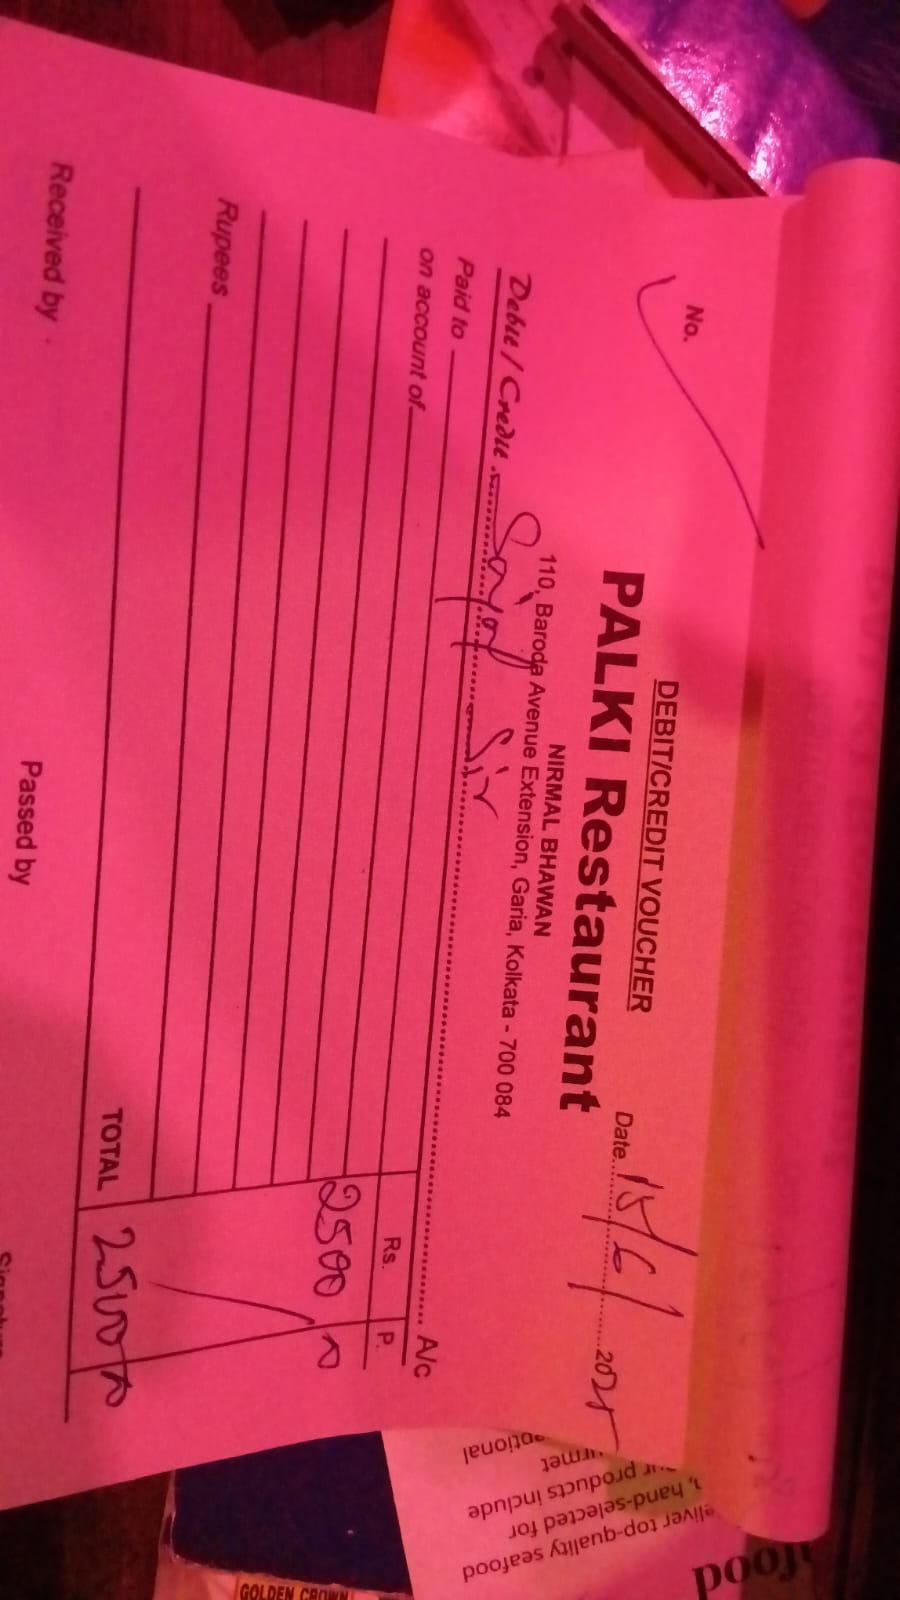 No.
DEBIT/CREDIT VOUCHER
PALKI Restaurant
NIRMAL BHAWAN
110, Baroda Avenue Extension, Garia, Kolkata - 700 084
Date 15/6/ 2025
Debit / Credit Sayan Sir A/c
Paid to
on account of
Rs. P.
2500
Rupees
TOTAL 2500
Received by
Passed by
food
eliver top-quality seafood
hand-selected for
products include
GOLDEN CROWN